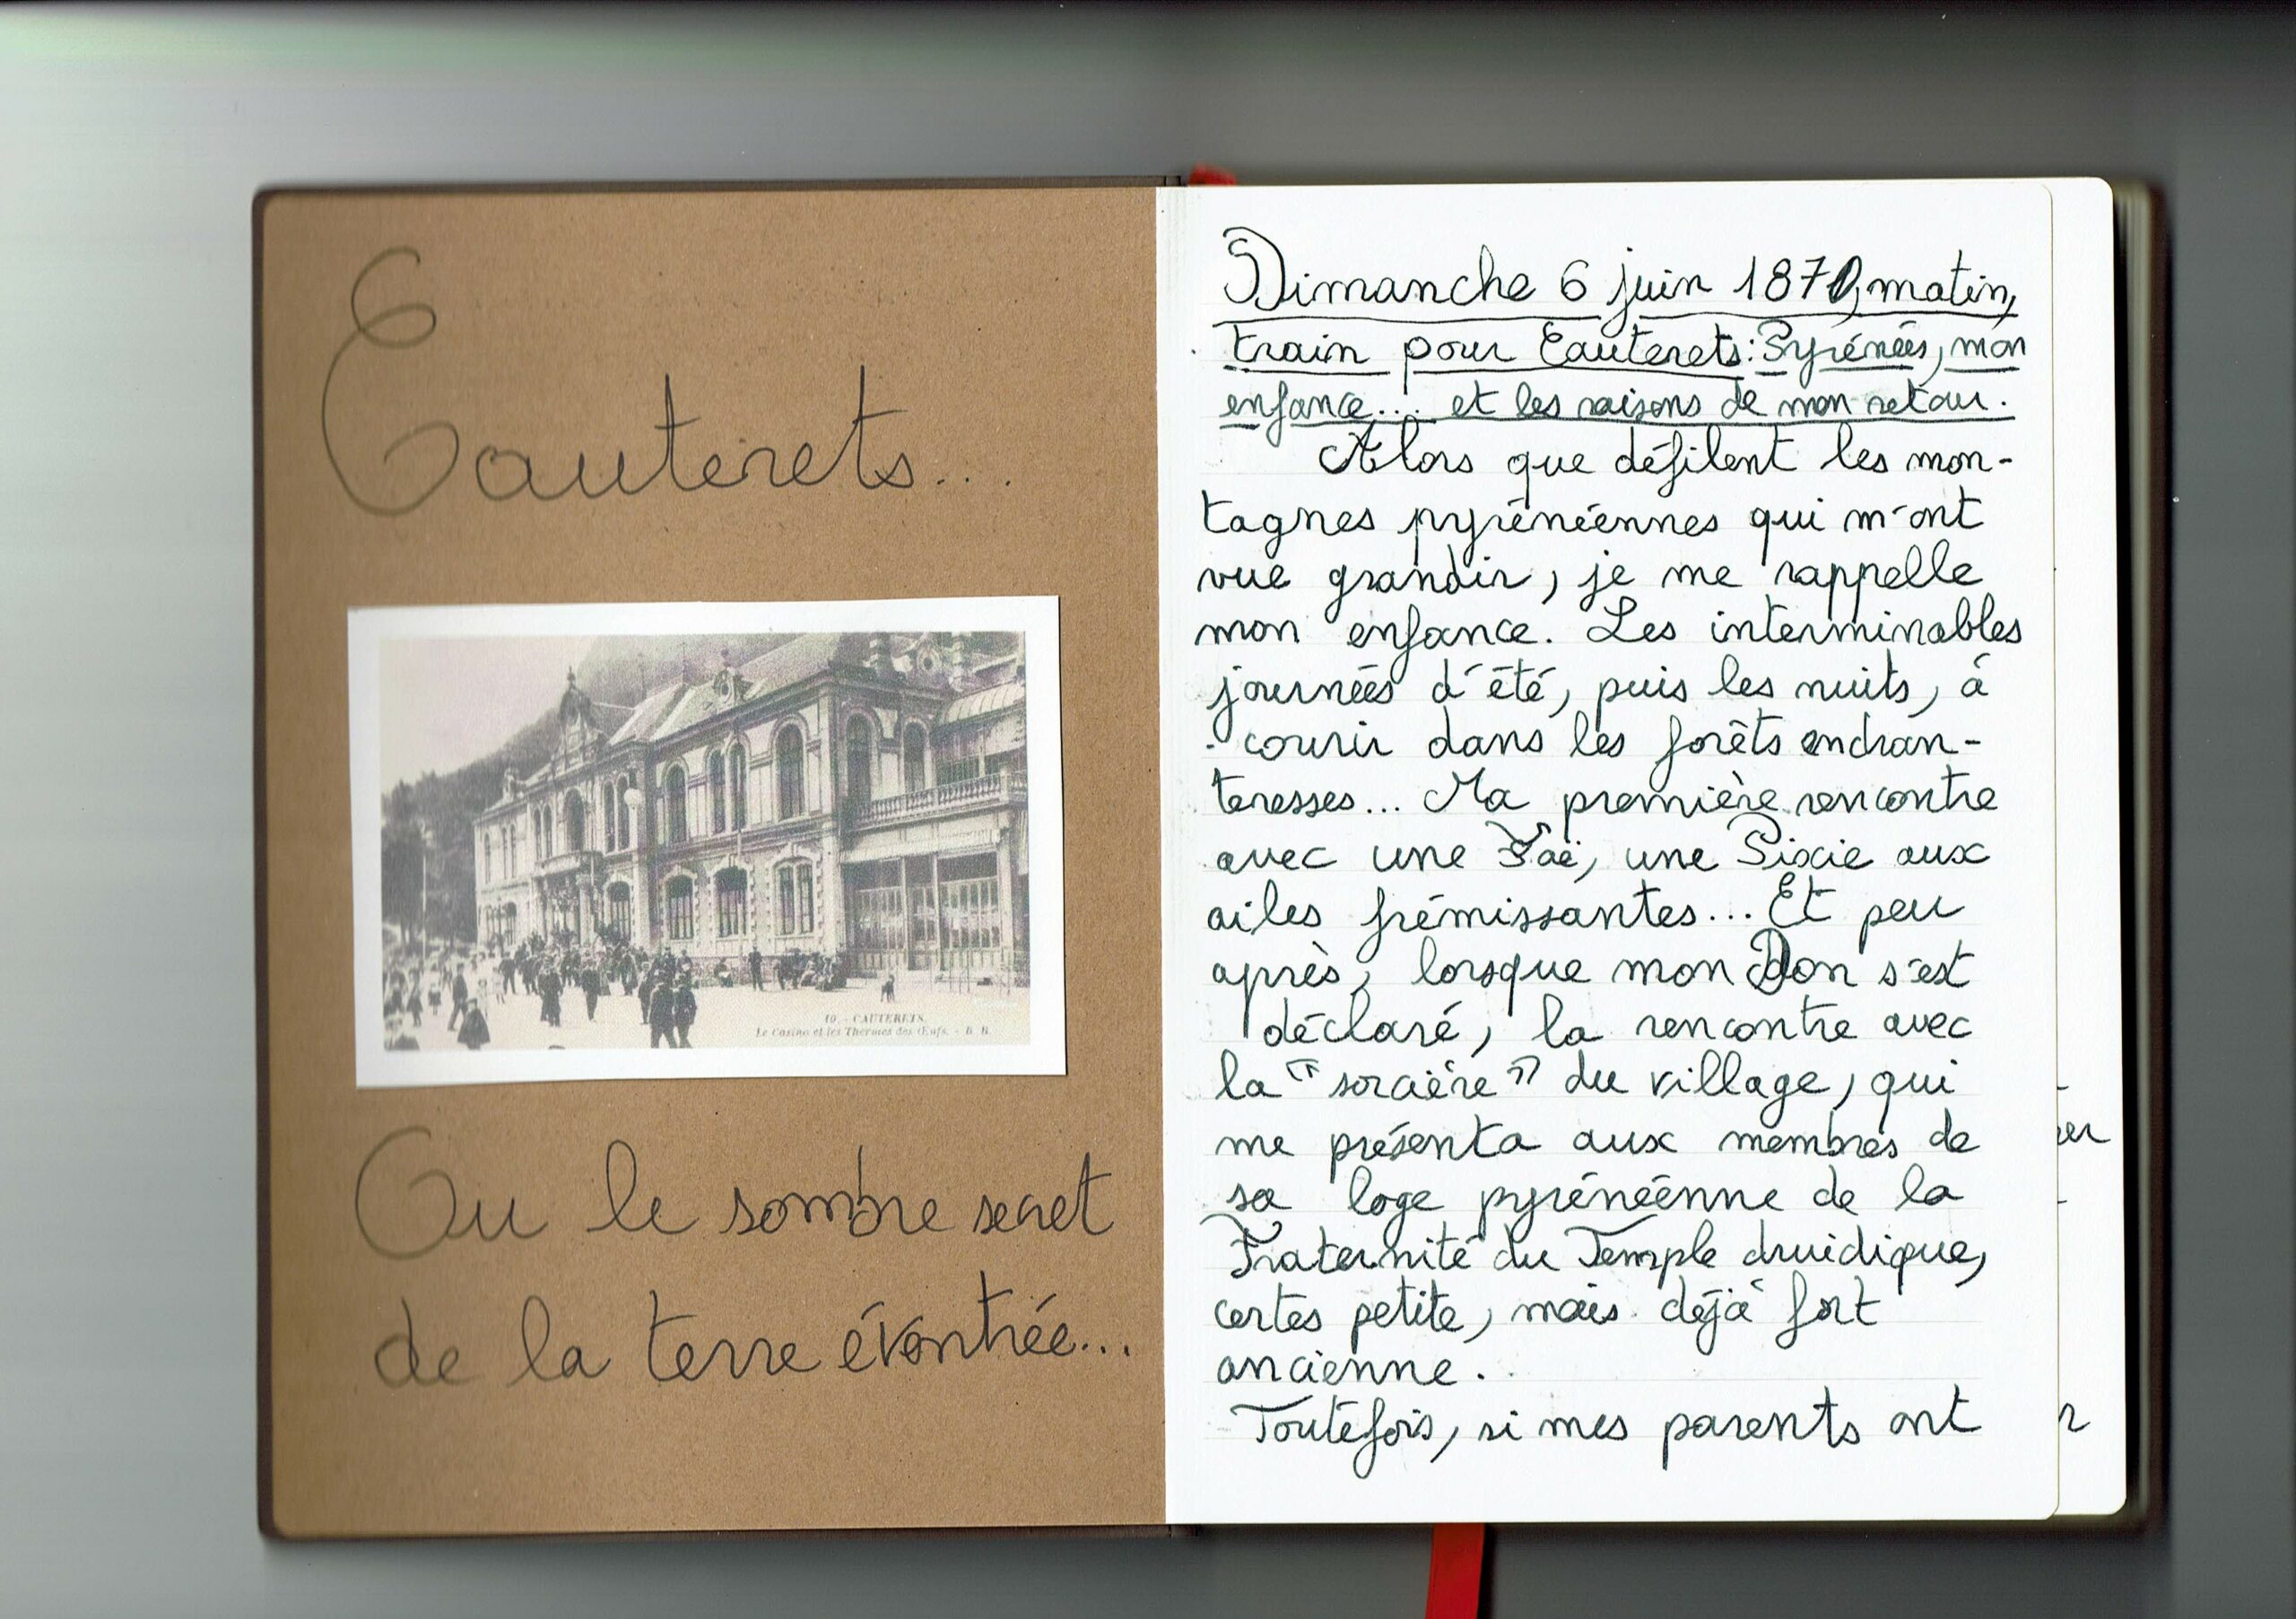 Cauterets...
10. - CAUTERETS.
Le Casino et les Thermes des Œufs. - B. R.
Ou le sombre secret
de la terre éventrée...
Dimanche 6 juin 1870, matin,
train pour Cauterets : Pyrénées, mon
enfance... et les raisons de mon retour.
Alors que défilent les mon-
tagnes pyrénéennes qui m'ont
vue grandir, je me rappelle
mon enfance. Les interminables
journées d'été, puis les nuits, à
courir dans les forêts enchan-
teresses... Ma première rencontre
avec une Faë, une Pixie aux
ailes frémissantes... Et peu
après, lorsque mon Don s'est
déclaré, la rencontre avec
la « sorcière » du village, qui
me présenta aux membres de
sa loge pyrénéenne de la
Fraternité du Temple druidique,
certes petite, mais déjà fort
ancienne.
Toutefois, si mes parents ont
er
r